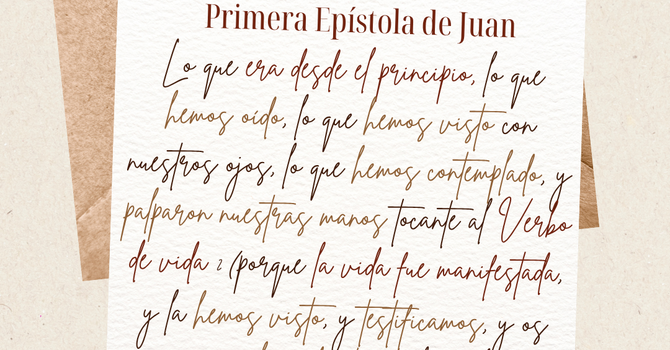 Primera Epístola de Juan
Lo que era desde el principio, lo que
hemos oído, lo que hemos visto con
nuestros ojos, lo que hemos contemplado, y
palparon nuestras manos tocante al Verbo
de vida 2 (porque la vida fue manifestada,
y la hemos visto, y testificamos, y os